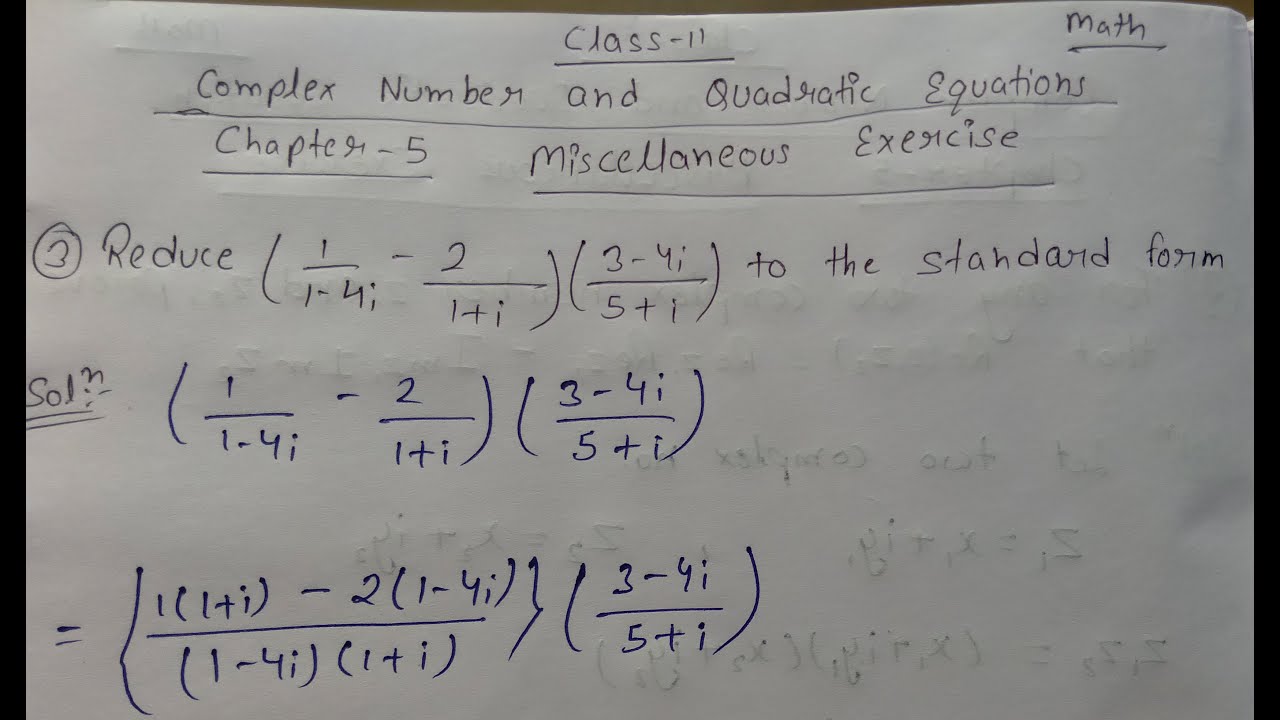 Class-11
Math
Complex Number and Quadratic Equations
Chapter-5 Miscellaneous Exercise
③ Reduce (1/(1-4i) - 2/(1+i))((3-4i)/(5+i)) to the standard form
Solⁿ:- (1/(1-4i) - 2/(1+i))((3-4i)/(5+i))
= {(1(1+i) - 2(1-4i))/((1-4i)(1+i))}((3-4i)/(5+i))